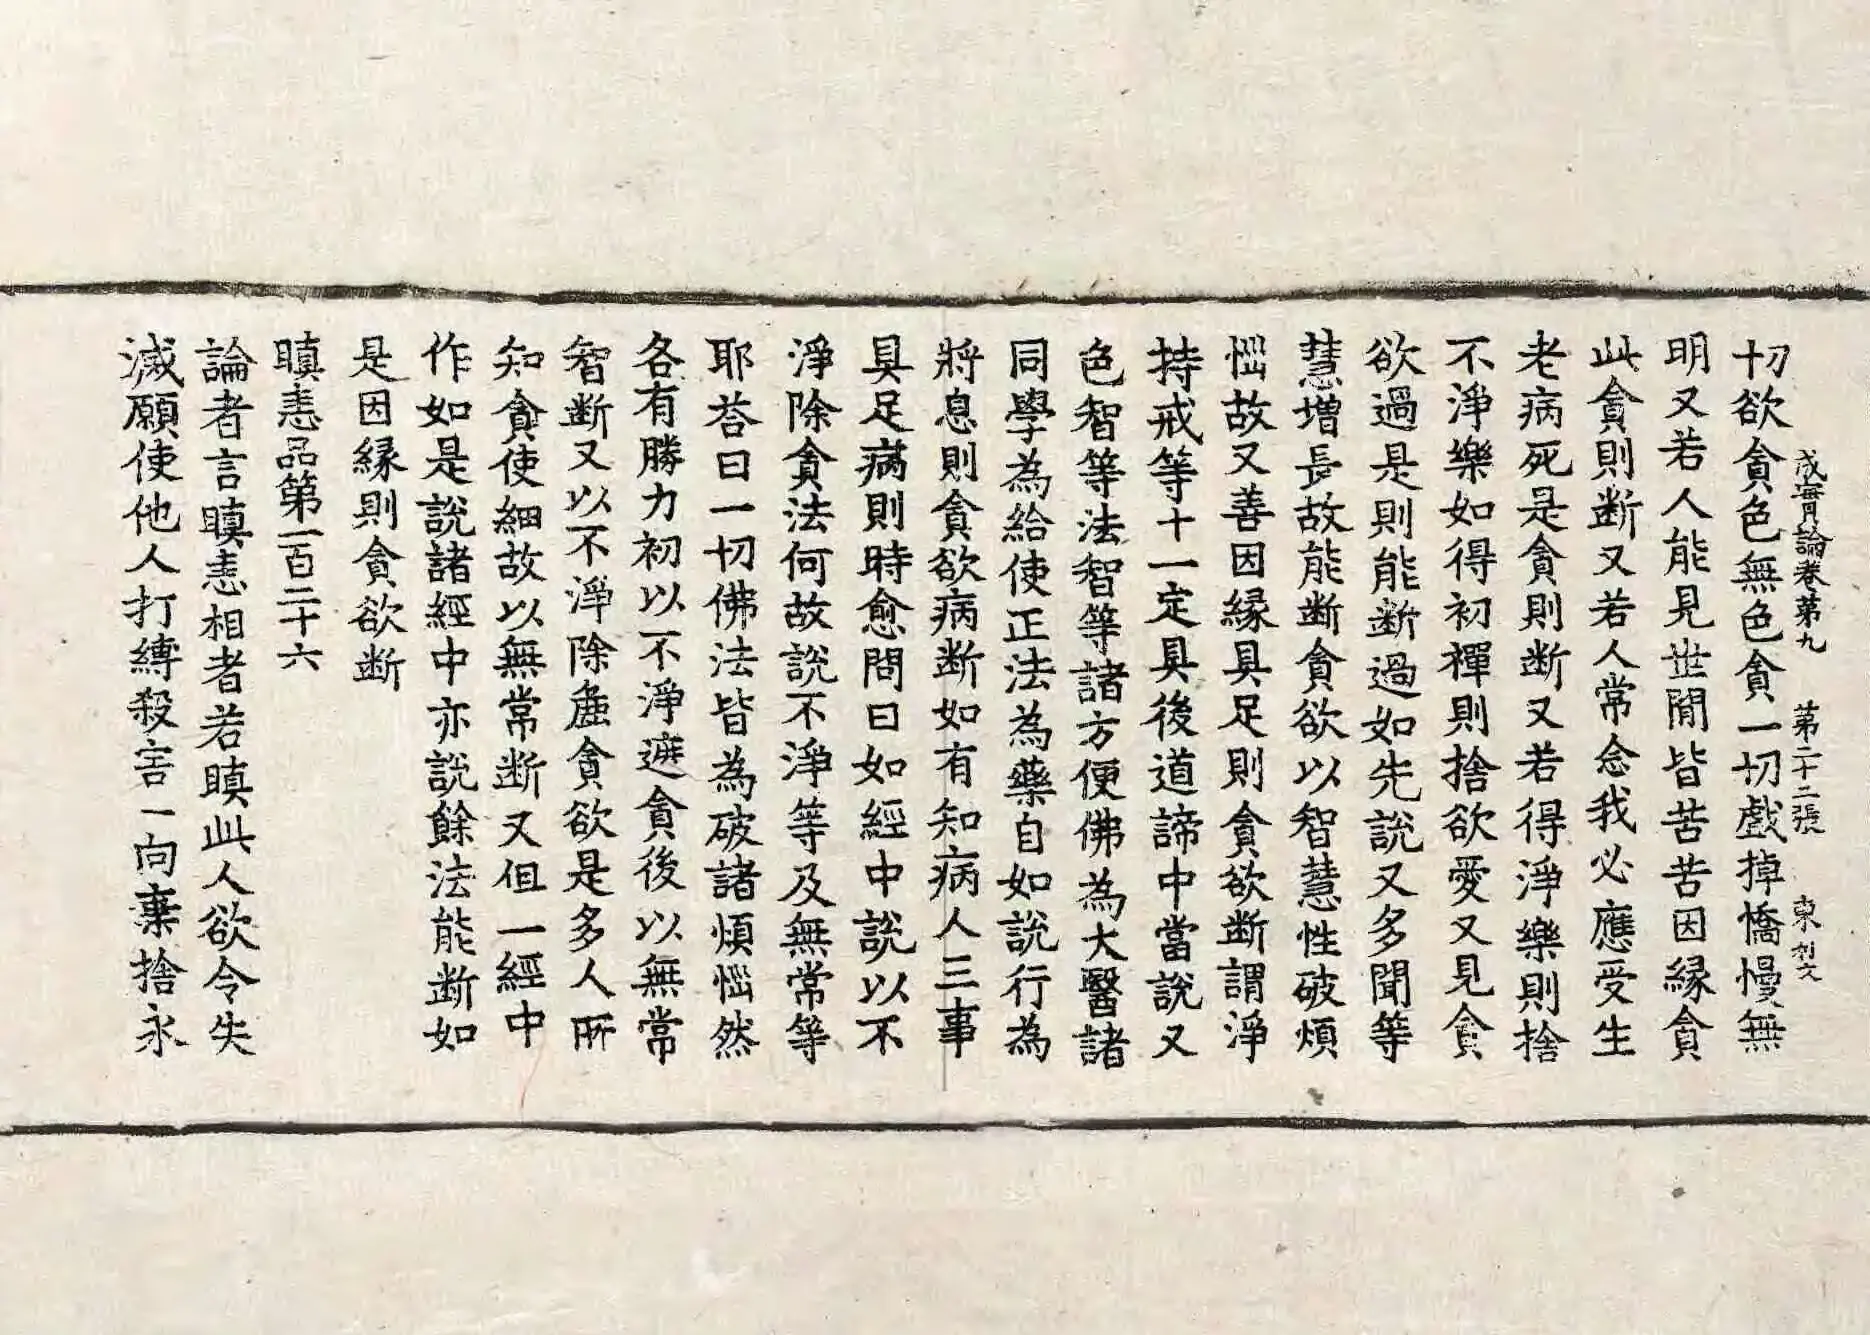 成實論卷第九 第二十二張 東 刘文
切欲貪色無色貪一切戲掉憍慢無
明又若人能見世閒皆苦苦因縁貪
此貪則断又若人常念我必應受生
老病死是貪則断又若得淨樂則捨
不淨樂如得初禪則捨欲愛又見貪
欲過是則能断過如先說又多聞等
慧增長故能断貪欲以智慧性破煩
惱故又善因縁具足則貪欲断謂淨
持戒等十一定具後道諦中當說又
色智等法智等諸方便佛為大醫諸
同學為給使正法為藥自如說行為
將息則貪欲病断如有知病人三事
具足病則時愈問曰如經中說以不
淨除貪法何故說不淨等及無常等
耶荅曰一切佛法皆為破諸煩惱然
各有勝力初以不淨遮貪後以無常
智断又以不淨除麁貪欲是多人所
知貪使細故以無常断又但一經中
作如是說諸經中亦說餘法能断如
是因縁則貪欲断
瞋恚品第一百二十六
論者言瞋恚相者若瞋此人欲令失
滅願使他人打縛殺害一向棄捨永